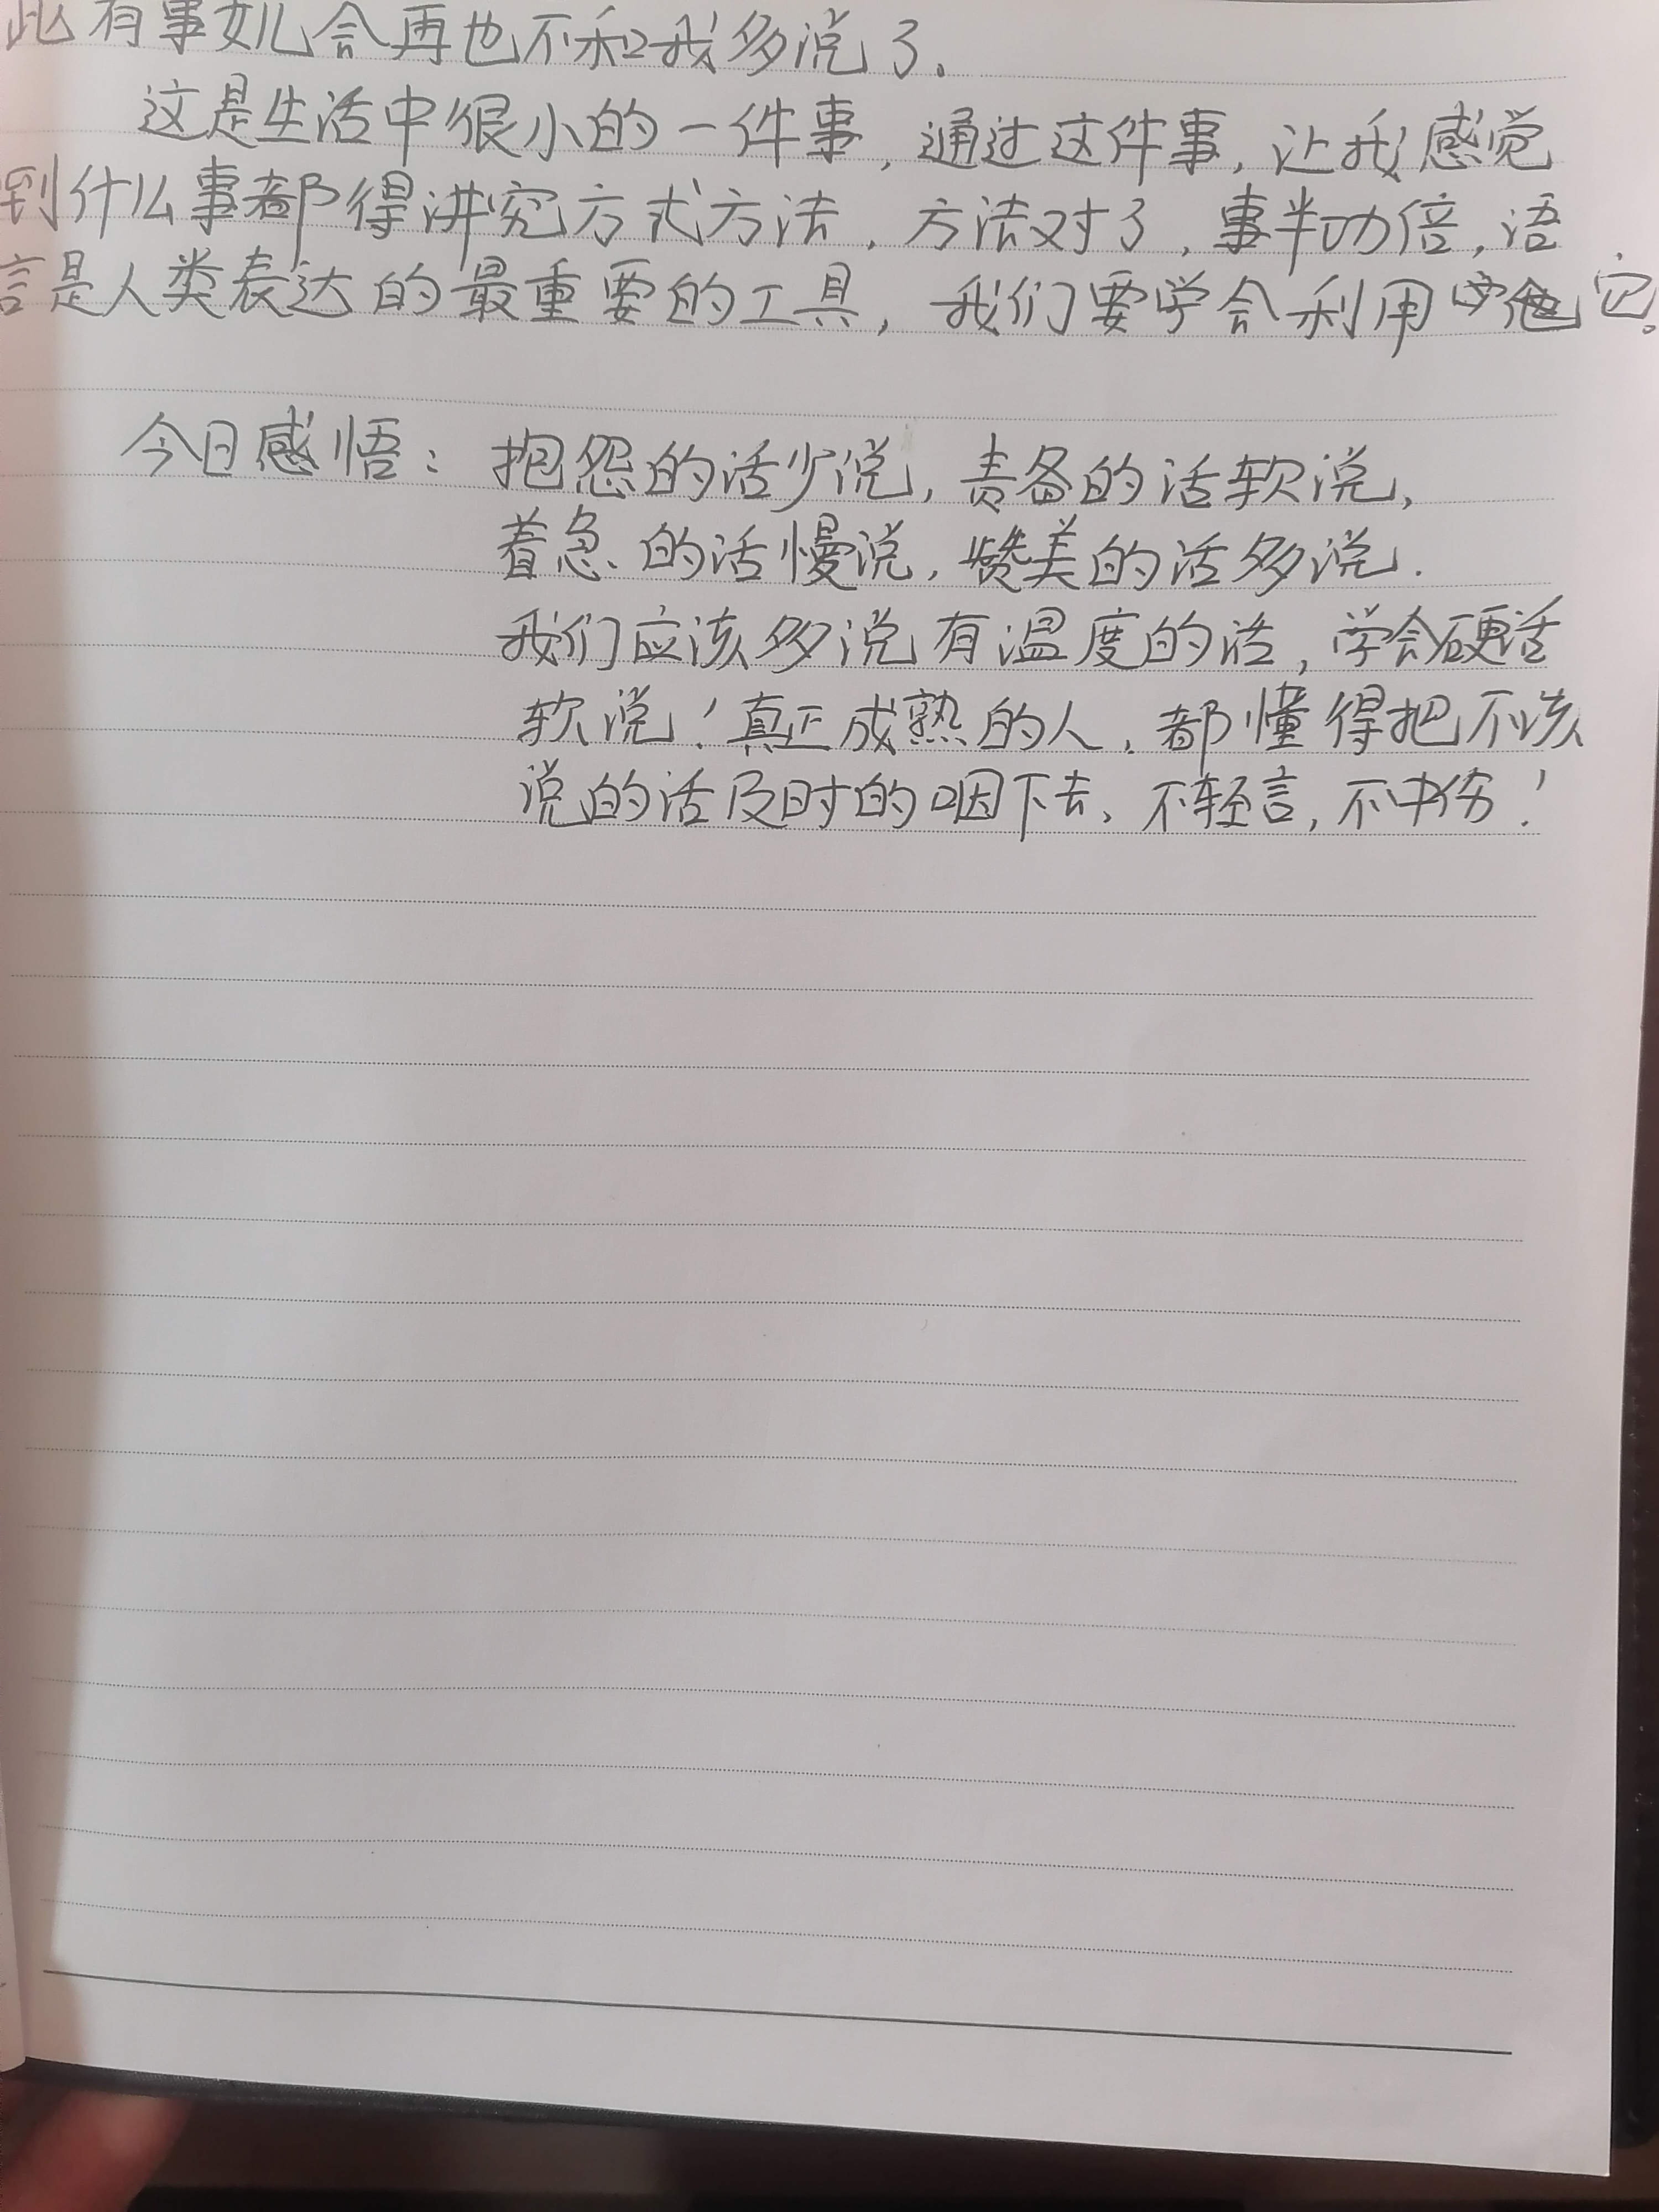 此有事女儿会再也不和我多说了。
这是生活中很小的一件事，通过这件事，让我感觉
到什么事都得讲究方式方法，方法对了，事半功倍，语
言是人类表达的最重要的工具，我们要学会利用它。
今日感悟：抱怨的话少说，责备的话软说，
着急的话慢说，赞美的话多说．
我们应该多说有温度的话，学会硬话
软说！真正成熟的人，都懂得把不该
说的话及时的咽下去、不轻言，不中伤！